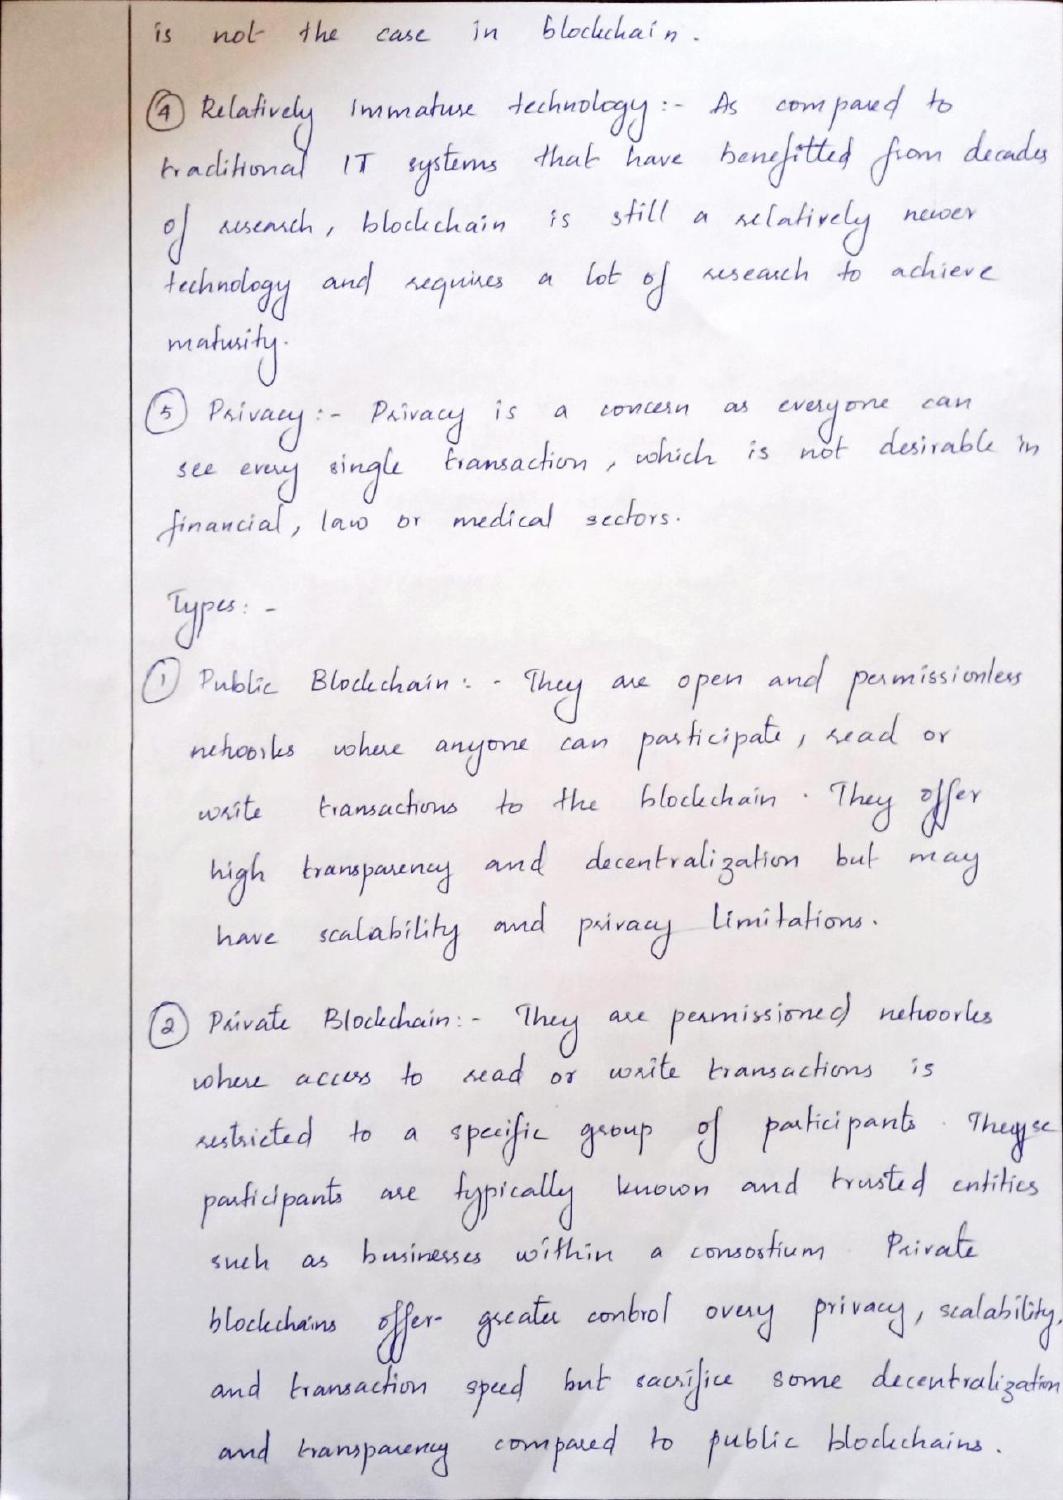 is not the case in blockchain.
④ Relatively Immature technology :- As compared to
traditional IT systems that have benefitted from decades
of research, blockchain is still a relatively newer
technology and requires a lot of research to achieve
maturity.
⑤ Privacy :- Privacy is a concern as everyone can
see every single transaction, which is not desirable in
financial, law or medical sectors.
Types: -
① Public Blockchain: - They are open and permissionless
networks where anyone can participate, read or
write transactions to the blockchain. They offer
high transparency and decentralization but may
have scalability and privacy limitations.
② Private Blockchain: - They are permissioned networks
where access to read or write transactions is
restricted to a specific group of participants. These
participants are typically known and trusted entities
such as businesses within a consortium Private
blockchains offer greater control overy privacy, scalability,
and transaction speed but sacrifice some decentralization
and transparency compared to public blockchains.